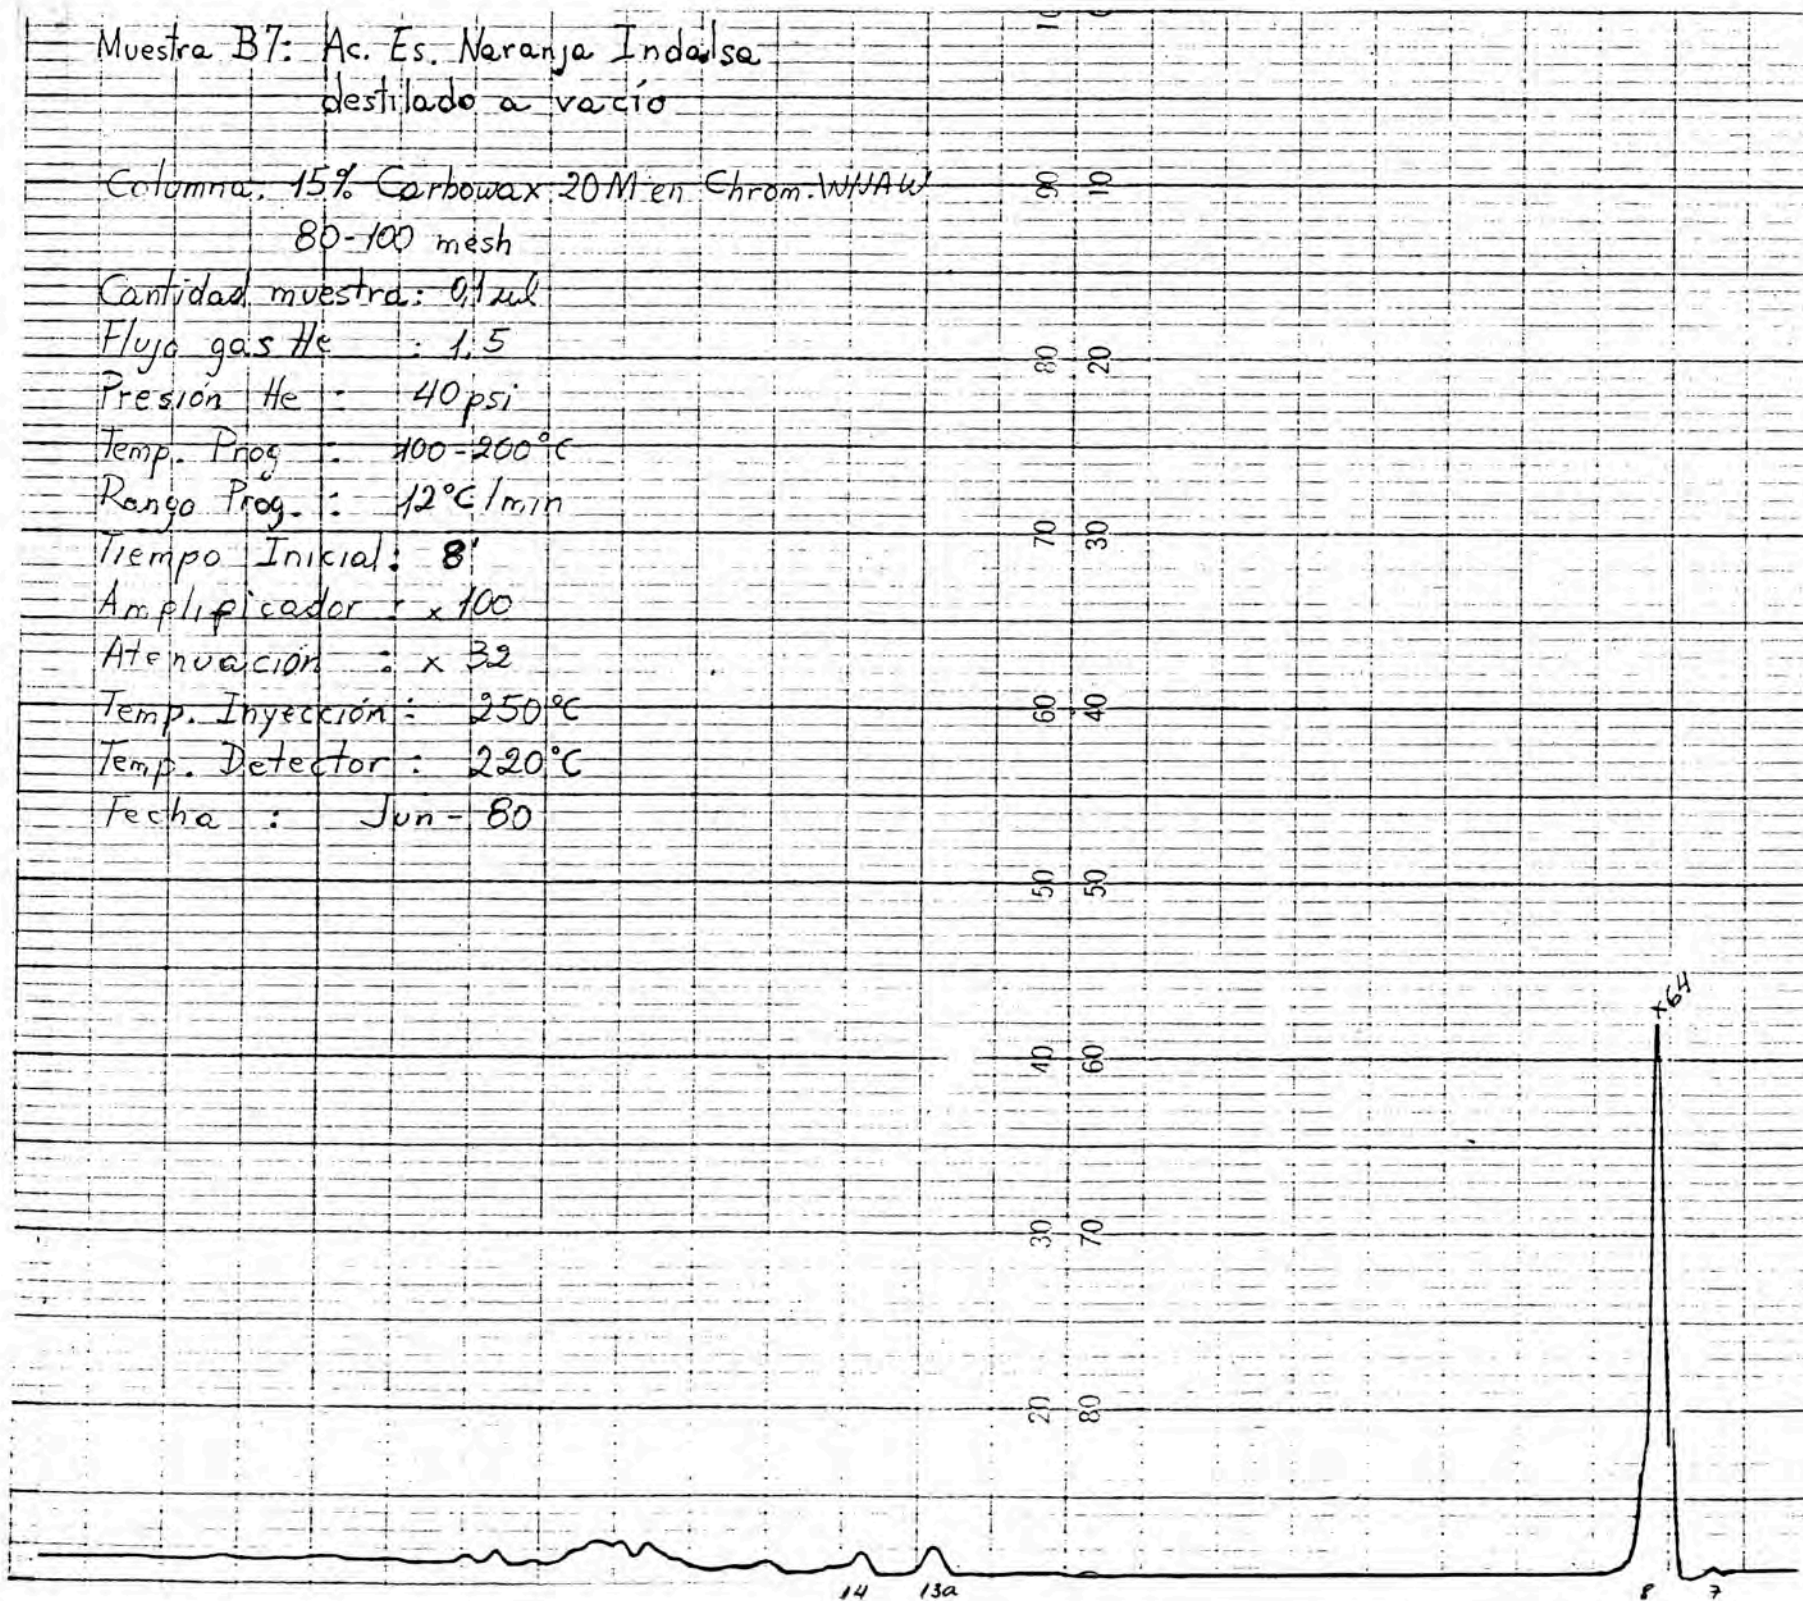 Muestra B7: Ac. Es. Naranja Indalsa
destilado a vacío
Columna. 15% Carbowax 20M en Chrom. WNAW
80-100 mesh
Cantidad muestra: 0,1 ul
Flujo gas He : 1,5
Presión He : 40 psi
Temp. Prog : 100-200°C
Rango Prog. : 12°C/min
Tiempo Inicial: 8'
Amplificador : x 100
Atenuación : x 32
Temp. Inyección : 250°C
Temp. Detector : 220°C
Fecha : Jun - 80
90 10
80 20
70 30
60 40
50 50
40 60
30 70
20 80
x64
14 13a 8 7